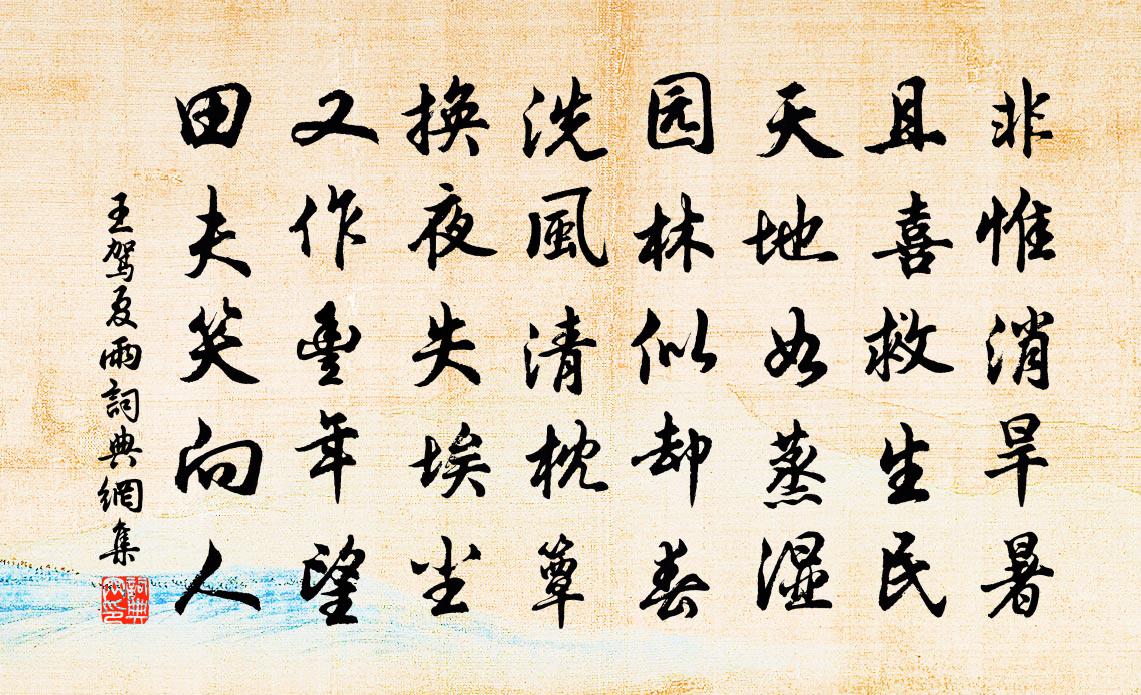 非惟消旱暑
且喜救生民
天地如蒸湿
园林似却春
洗風清枕簟
换夜失埃尘
又作豐年望
田夫笑向人
王驾夏雨詞典網集